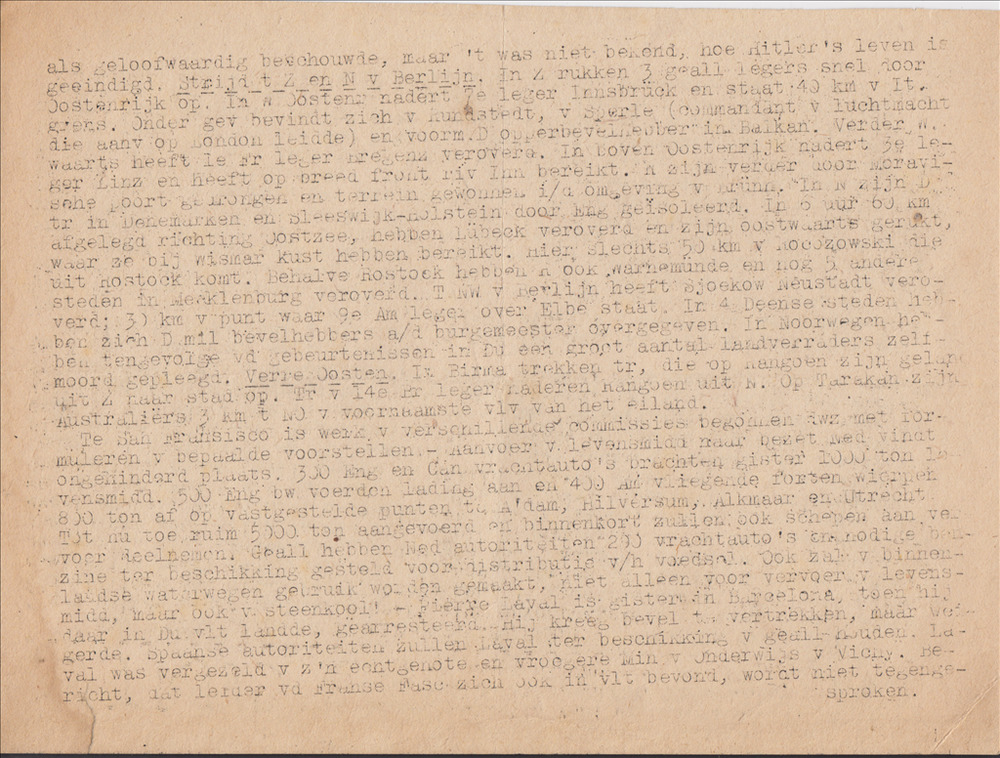 als geloofwaardig beschouwde, maar 't was niet bekend, hoe Hitler's leven is
geeindigd. Strijd t Z en N v Berlijn. In Z rukken 3 geall legers snel door
Oostenrijk op. In W Oostenr nadert 7e leger Innsbrück en staat 40 km v It.
grens. Onder gev bevindt zich v Rundstedt, v Sperle (commandant v luchtmacht
die aanv op London leidde) en voorm.D opperbevelhebber in Balkan. Verder w.
waarts heeft 1e Fr leger Bregenz veroverd. In boven Oostenrijk nadert 3e le-
ger Linz en heeft op breed front riv Inn bereikt. R zijn verder door Moravi-
sche poort gedrongen en terrein gewonnen i/d omgeving v Brünn. In N zijn D
tr in Denemarken en Sleeswijk-Holstein door Eng geïsoleerd. In 6 uur 60 km
afgelegd richting Oostzee, hebben Lübeck veroverd en zijn oostwaarts gerukt,
waar ze bij Wismar kust hebben bereikt. Hier slechts 50 km v Rocozowski die
uit Rostock komt. Behalve Rostock hebben R ook Warnemünde en nog 5 andere
steden in Mecklenburg veroverd. T NW v Berlijn heeft Sjoekow Neustadt vero-
verd; 30 km v punt waar 9e Am leger over Elbe staat. In 4 Deense steden heb-
ben zich D mil bevelhebbers a/d burgemeester overgegeven. In Noorwegen heb-
ben tengevolge vd gebeurtenissen in Du een groot aantal landverraders zelf-
moord gepleegd. Verre Oosten. In Birma trekken tr, die op Rangoen zijn geland
uit Z naar stad op. Tr v 14e Br leger naderen Rangoen uit N. Op Tarakan zijn
Australiërs 3 km t NO v voornaamste vlv van het eiland.
Te San Fransisco is werk v verschillende commissies begonnen dwz met for-
muleren v bepaalde voorstellen.- Aanvoer v levensmidd naar bezet Ned vindt
ongehinderd plaats. 300 Eng en Can vrachtauto's brachten gister 1000 ton le-
vensmidd. 500 Eng bw voerden lading aan en 400 Am vliegende forten wierpen
800 ton af op vastgestelde punten te A'dam, Hilversum, Alkmaar en Utrecht.
Tot nu toe ruim 5000 ton aangevoerd en binnenkort zullen ook schepen aan ver
voer deelnemen. Geall hebben Ned autoriteiten 200 vrachtauto's en nodige ben
zine ter beschikking gesteld voor distributie v/h voedsel. Ook zal v binnen-
landse waterwegen gebruik worden gemaakt, niet alleen voor vervoer v levens-
midd, maar ook v steenkool! - Pierre Laval is gister in Barcelona, toen hij
daar in Du vlt landde, gearresteerd. Hij kreeg bevel te vertrekken, maar wei-
gerde. Spaanse autoriteiten zullen Laval ter beschikking v geall houden. La-
val was vergezeld v z'n echtgenote en vroegere Min v Onderwijs v Vichy. Be-
richt, dat leider vd Franse Fasc zich ook in vlt bevond, wordt niet tegenge-
sproken.